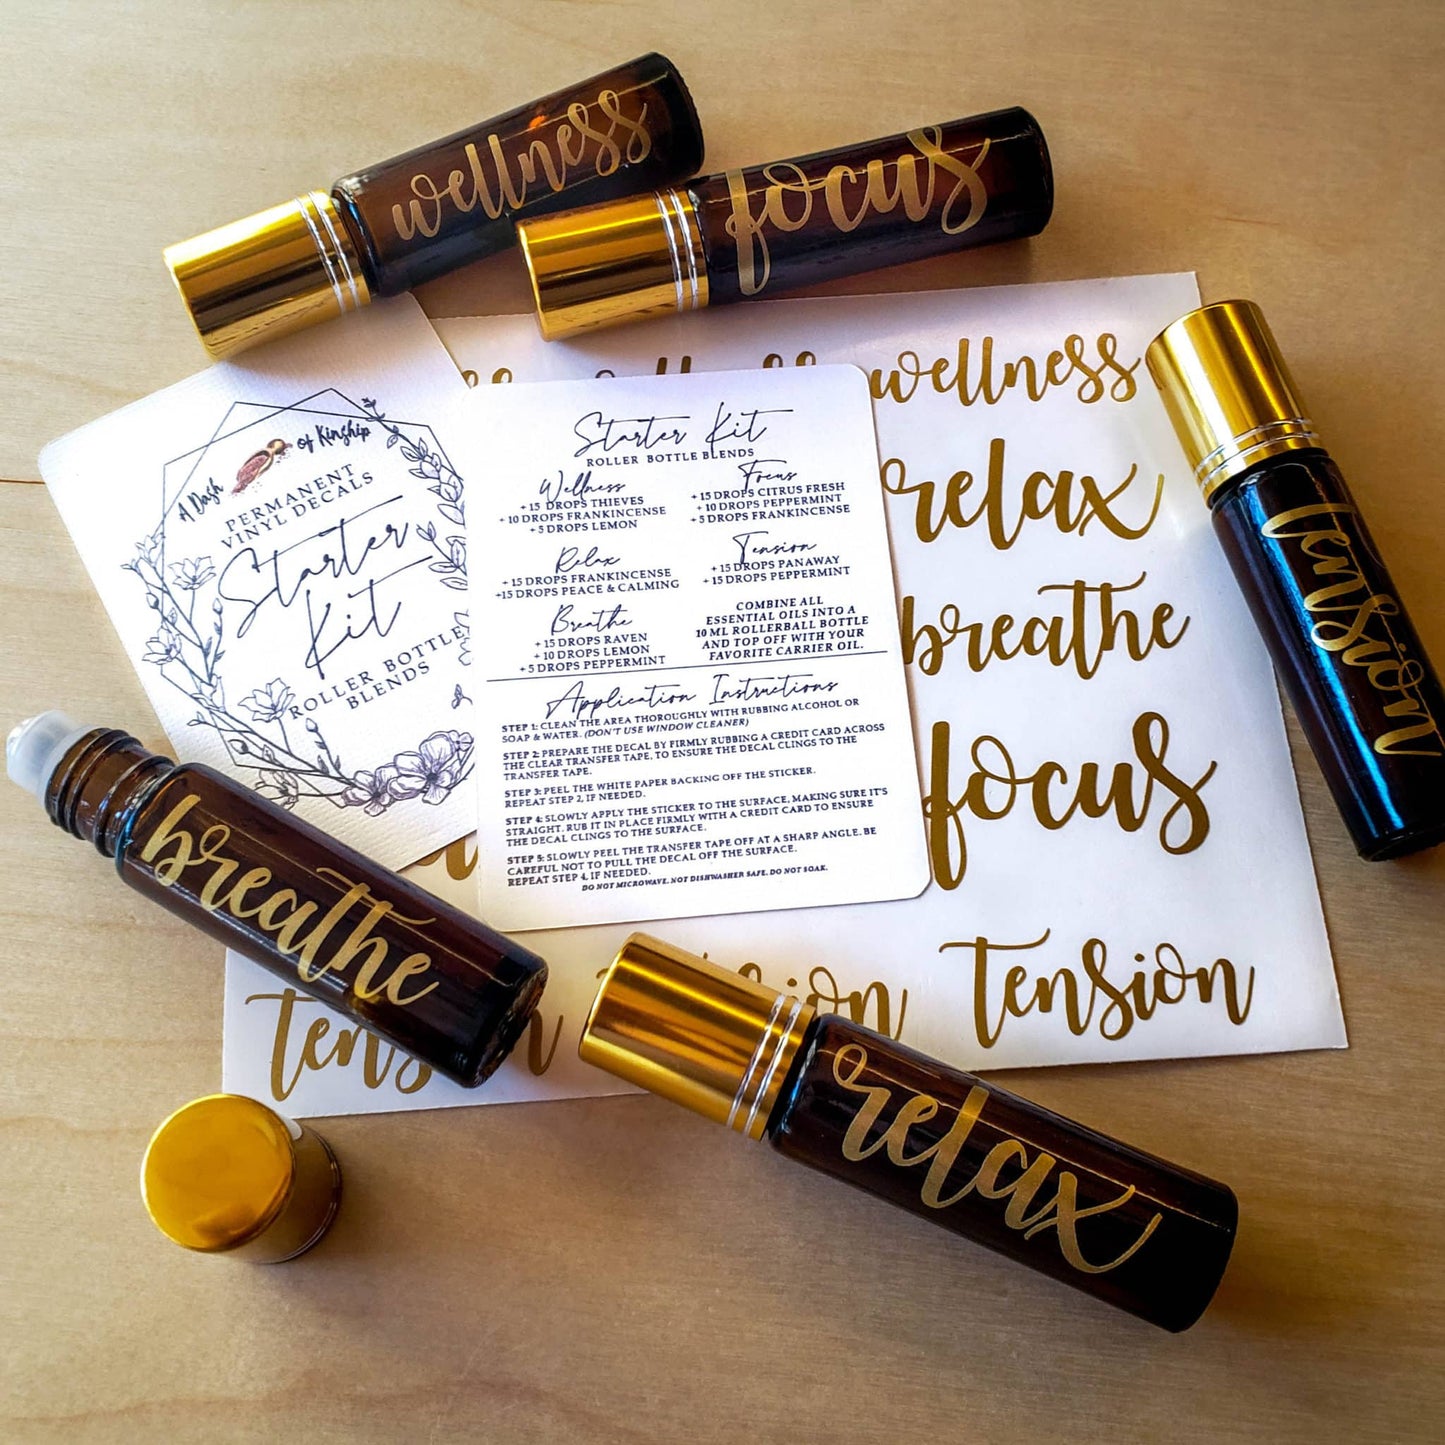 wellness
focus
tension
breathe
relax
A Dash of Kinship
PERMANENT
VINYL DECALS
Starter
Kit
ROLLER BOTTLE
BLENDS
Starter Kit
ROLLER BOTTLE BLENDS
Wellness
+ 15 DROPS THIEVES
+ 10 DROPS FRANKINCENSE
+ 5 DROPS LEMON
Focus
+ 15 DROPS CITRUS FRESH
+ 10 DROPS PEPPERMINT
+ 5 DROPS FRANKINCENSE
Relax
+ 15 DROPS FRANKINCENSE
+15 DROPS PEACE & CALMING
Tension
+ 15 DROPS PANAWAY
+ 15 DROPS PEPPERMINT
Breathe
+ 15 DROPS RAVEN
+ 10 DROPS LEMON
+ 5 DROPS PEPPERMINT
COMBINE ALL
ESSENTIAL OILS INTO A
10 ML ROLLERBALL BOTTLE
AND TOP OFF WITH YOUR
FAVORITE CARRIER OIL.
Application Instructions
STEP 1: CLEAN THE AREA THOROUGHLY WITH RUBBING ALCOHOL OR
SOAP & WATER. (DON'T USE WINDOW CLEANER)
STEP 2: PREPARE THE DECAL BY FIRMLY RUBBING A CREDIT CARD ACROSS
THE CLEAR TRANSFER TAPE, TO ENSURE THE DECAL CLINGS TO THE
TRANSFER TAPE.
STEP 3: PEEL THE WHITE PAPER BACKING OFF THE STICKER.
REPEAT STEP 2, IF NEEDED.
STEP 4: SLOWLY APPLY THE STICKER TO THE SURFACE, MAKING SURE IT'S
STRAIGHT. RUB IT IN PLACE FIRMLY WITH A CREDIT CARD TO ENSURE
THE DECAL CLINGS TO THE SURFACE.
STEP 5: SLOWLY PEEL THE TRANSFER TAPE OFF AT A SHARP ANGLE. BE
CAREFUL NOT TO PULL THE DECAL OFF THE SURFACE.
REPEAT STEP 4, IF NEEDED.
DO NOT MICROWAVE. NOT DISHWASHER SAFE. DO NOT SOAK.
wellness
relax
breathe
focus
tension
tension